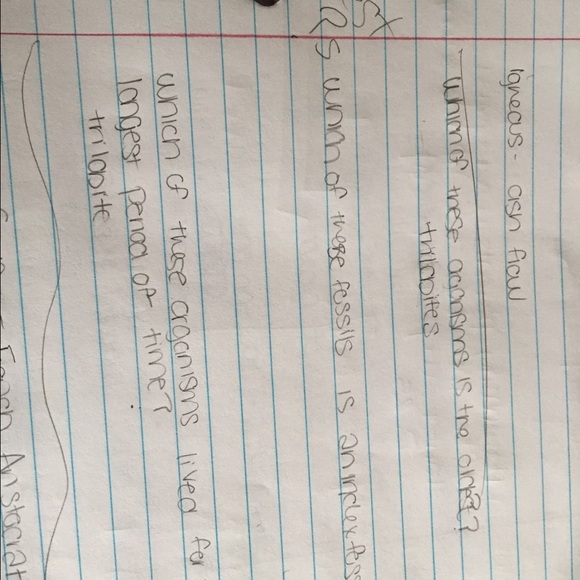 igneous - ash flow
which of these organisms is the oldest?
trilobites
Q5 which of these fossils is an index foss
which of these organisms lived for
longest period of time?
trilobite
Each